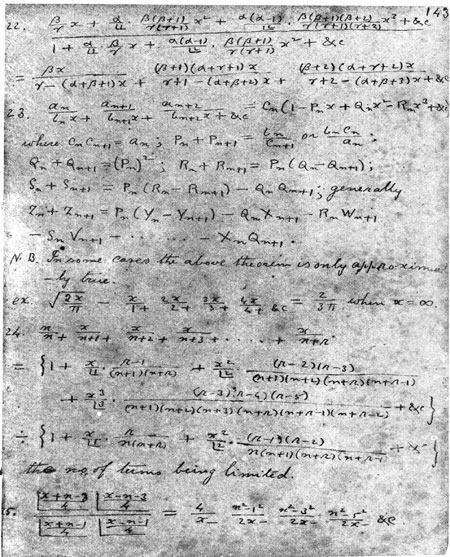 143
22. β/γ x + α/⌊1 · β(β+1)/γ(γ+1) x² + α(α-1)/⌊2 · β(β+1)(β+2)/γ(γ+1)(γ+2) x³ + &c
1 + α/⌊1 · β/γ x + α(α-1)/⌊2 · β(β+1)/γ(γ+1) x² + &c
= βx/γ-(α+β+1)x + (β+1)(α+γ+1)x/γ+1-(α+β+2)x + (β+2)(α+γ+2)x/γ+2-(α+β+3)x+&c
23. aₙ/bₙx + aₙ₊₁/bₙ₊₁x + aₙ₊₂/bₙ₊₂x + &c = Cₙ(1-Pₙx+Qₙx²-Rₙx³+&c
where CₙCₙ₊₁ = aₙ; Pₙ + Pₙ₊₁ = bₙ/Cₙ₊₁ or bₙCₙ/aₙ;
Qₙ + Qₙ₊₁ = (Pₙ)²; Rₙ + Rₙ₊₁ = Pₙ(Qₙ-Qₙ₊₁);
Sₙ + Sₙ₊₁ = Pₙ(Rₙ-Rₙ₊₁) - QₙQₙ₊₁; generally
Zₙ + Zₙ₊₁ = Pₙ(Yₙ-Yₙ₊₁) - QₙXₙ₊₁ - RₙWₙ₊₁
- SₙVₙ₊₁ - ..... - XₙQₙ₊₁.
N.B. In some cases the above theorem is only approxima
-ly true.
ex. √(2x/π) - x/1+ 2x/2+ 3x/3+ 4x/4+&c = 2/3π when x = ∞
24. n/n + x/n+1 + x/n+2 + x/n+3 + ..... + x/n+r
= {1 + x/⌊1 · r-1/(n+1)(n+r) + x²/⌊2 · (r-2)(r-3)/(n+1)(n+2)(n+r)(n+r-1)
+ x³/⌊3 · (r-3)(r-4)(r-5)/(n+1)(n+2)(n+3)(n+r)(n+r-1)(n+r-2) + &c}
÷ {1 + x/⌊1 · r/n(n+r) + x²/⌊2 · (r-1)(r-2)/n(n+1)(n+r)(n+r-1 + }
the no. of terms being limited.
5. ⌊x+n-3/4 ⌊x-n-3/4 / ⌊x+n-1/4 ⌊x-n-1/4 = 4/x- n²-1²/2x- n²-3²/2x- n²-5²/2x- &c